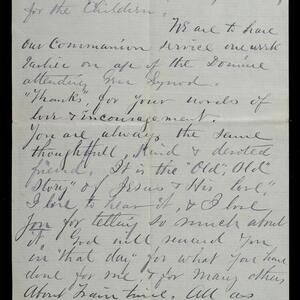 for the Children.
We are to have
our Communion service one week
earlier on of the Domine
attending Gen Synod.
"Thanks", for your words of
love & incouragement.
You are always the same
thoughtfull, kind & devoted
friend. It is the "Old, Old"
story" of Jesus & His love,"
I love to hear it, & I love
you for telling so much about
it. God will reward you
in "that day" for what you have
done for me & for many others
About train time. All as